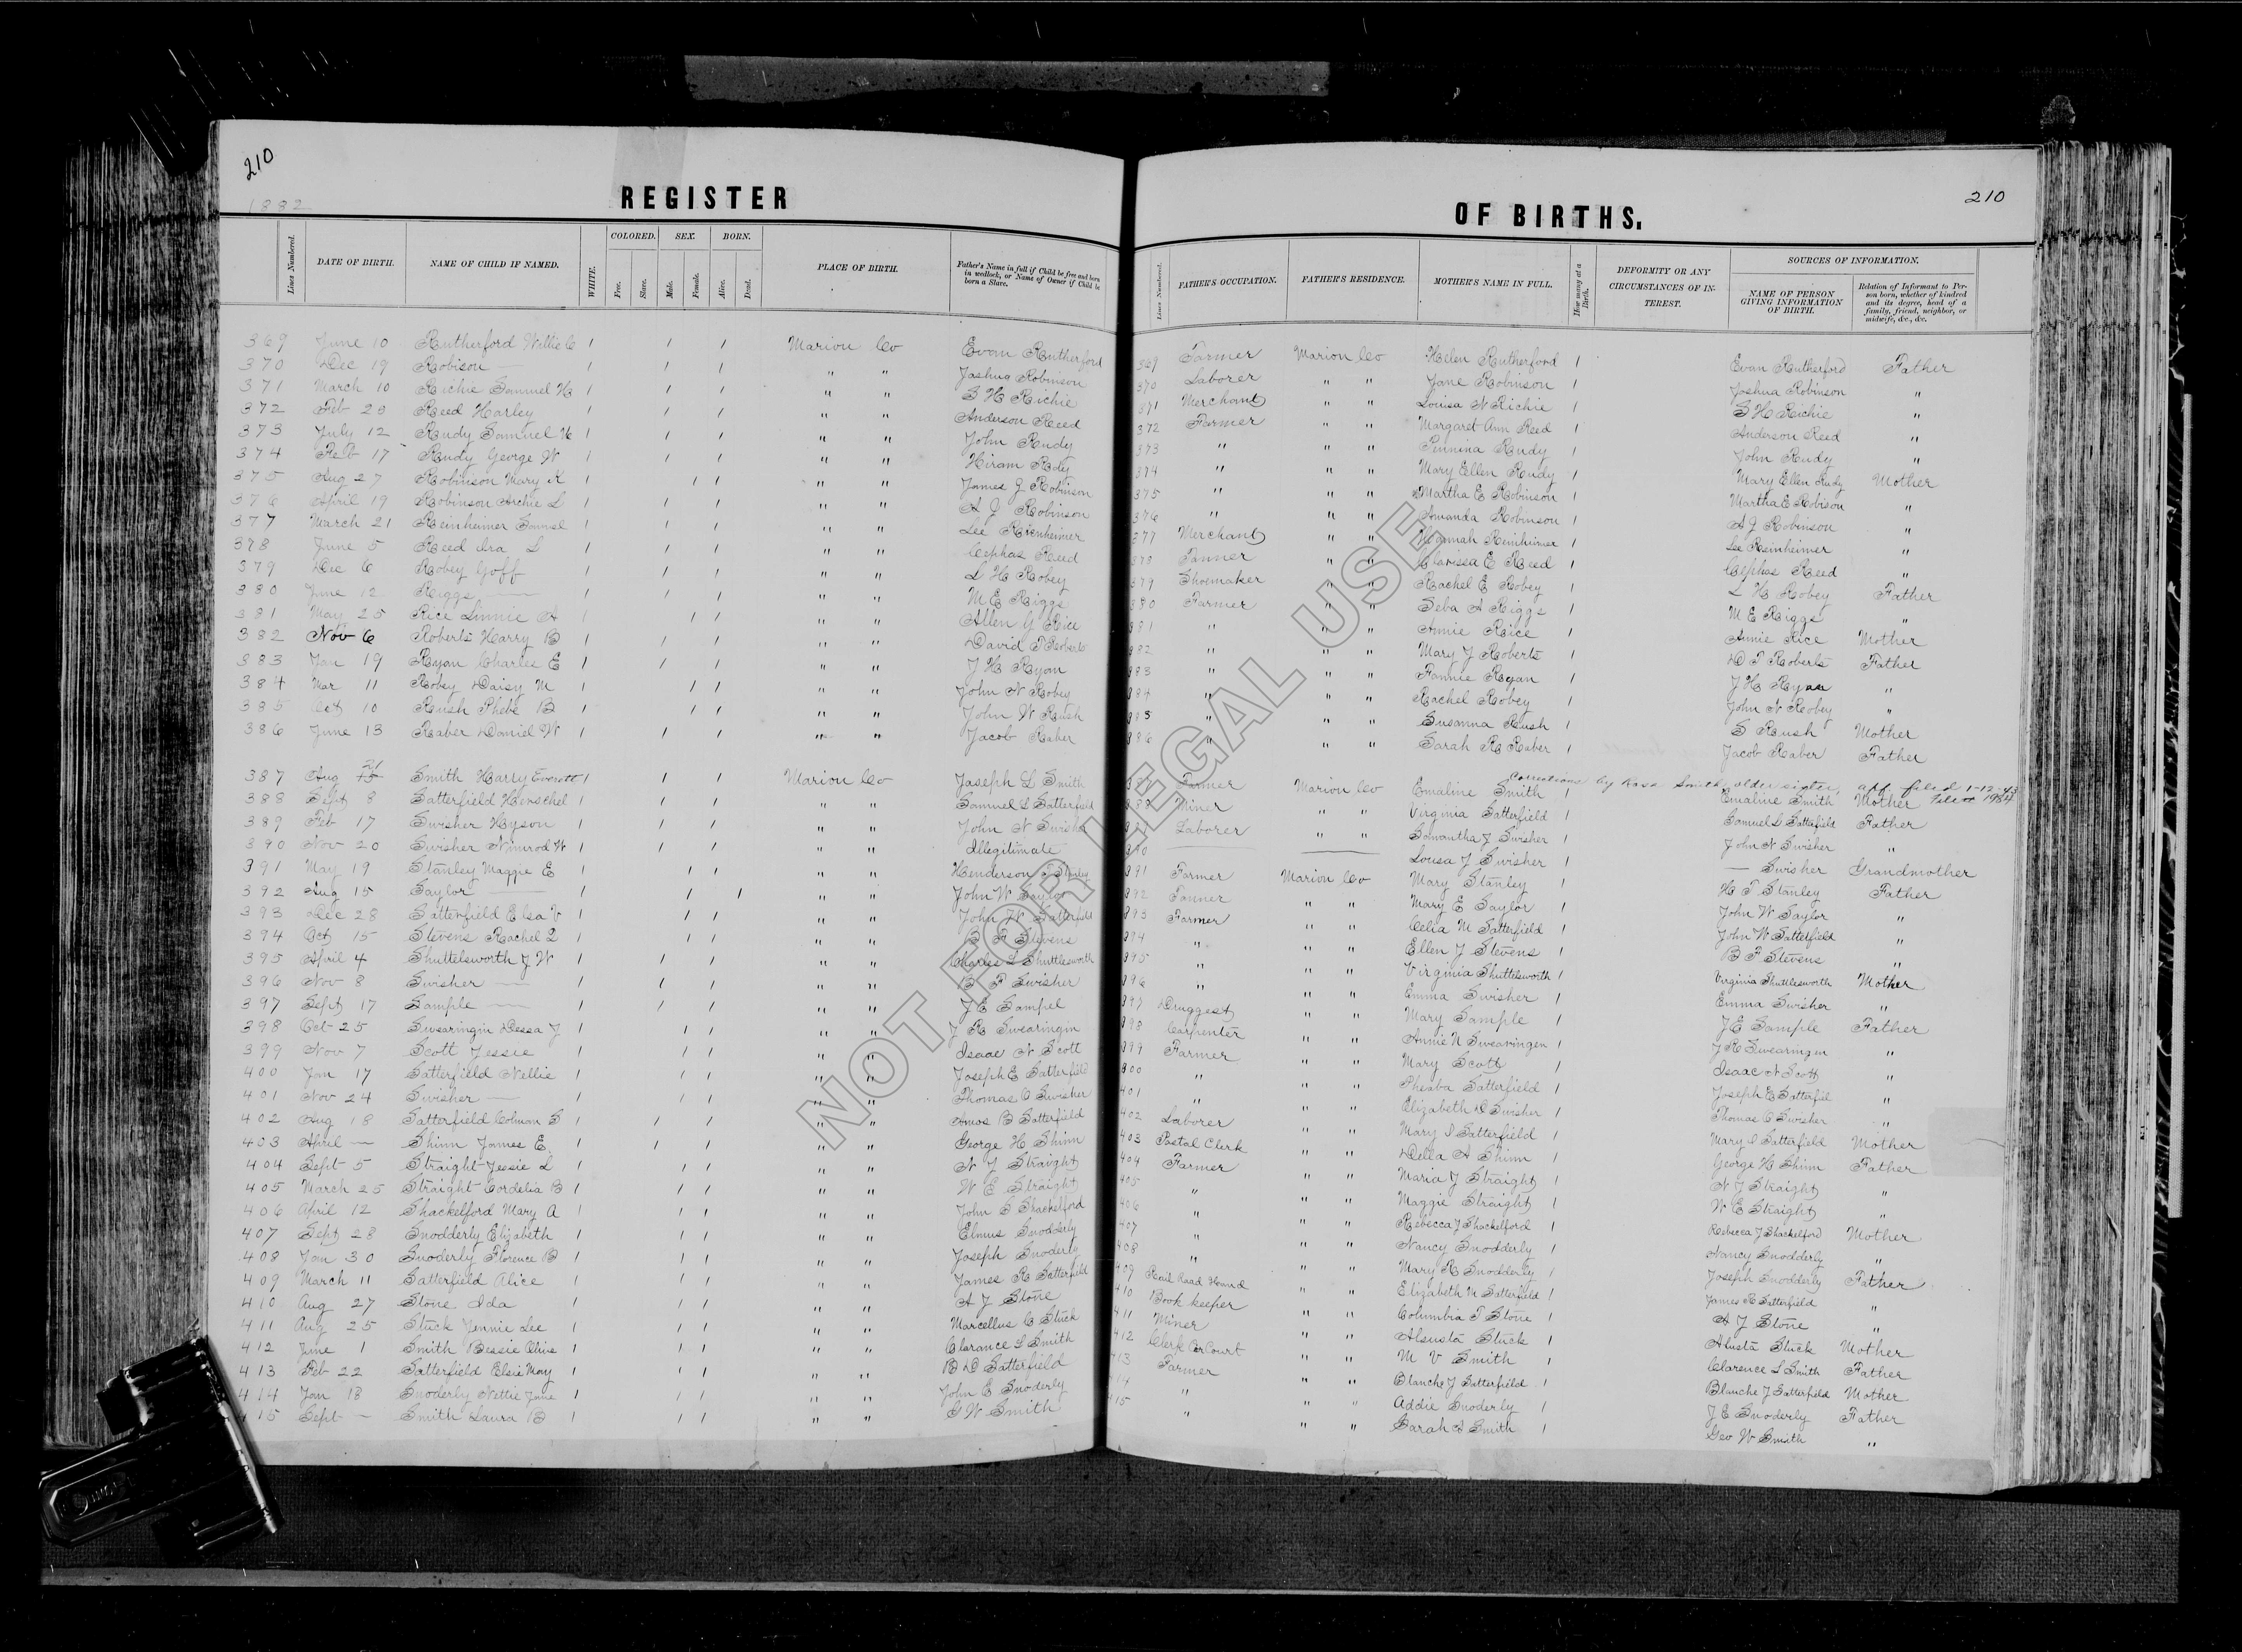 210
1882
REGISTER
Lines Numbered. DATE OF BIRTH. NAME OF CHILD IF NAMED. WHITE. COLORED. Free. Slave. SEX. Male. Female. BORN. Alive. Dead. PLACE OF BIRTH. Father's Name in full if Child be free and born in wedlock, or Name of Owner if Child be born a Slave.
369 June 10 Rutherford Willie C 1 1 1 Marion Co Evan Rutherford
370 Dec 19 Robison — 1 1 1 " " Joshua Robinson
371 March 10 Richie Samuel H 1 1 1 " " S H Richie
372 Feb 20 Reed Harley 1 1 1 " " Anderson Reed
373 July 12 Rudy Samuel 1 1 1 " " John Rudy
374 Feb 17 Rudy George W 1 1 1 " " Hiram Rudy
375 Aug 27 Robinson Mary K 1 1 1 " " James J Robinson
376 April 19 Robinson Archie L 1 1 1 " " A J Robinson
377 March 21 Reinheimer Samuel 1 1 1 " " Lee Rienheimer
378 June 5 Reed Ira L 1 1 1 " " Cephas Reed
379 Dec 6 Robey Goff 1 1 1 " " L H Robey
380 June 12 Riggs — 1 1 1 " " M E Riggs
381 May 25 Rice Linnie A 1 1 1 " " Allen G Rice
382 Nov 6 Roberts Harry B 1 1 1 " " David T Roberts
383 Jan 19 Ryan Charles E 1 1 1 " " J H Ryan
384 Mar 11 Robey Daisy M 1 1 1 " " John N Robey
385 Oct 10 Rush Phebe B 1 1 1 " " John W Rush
386 June 13 Raber Daniel W 1 1 1 " " Jacob Raber
387 Aug 15 21 Smith Harry Everott 1 1 1 Marion Co Joseph L Smith
388 Sept 8 Satterfield Herschel 1 1 1 " " Samuel L Satterfield
389 Feb 17 Swisher Hyson 1 1 1 " " John N Swisher
390 Nov 20 Swisher Nimrod W 1 1 1 " " Illegitimate
391 May 19 Stanley Maggie E 1 1 1 " " Henderson T Stanley
392 Aug 15 Saylor — 1 1 1 " " John W Saylor
393 Dec 28 Satterfield Elsa V 1 1 1 " " John W Satterfield
394 Oct 15 Stevens Rachel 1 1 1 " " B F Stevens
395 April 4 Shuttelsworth J W 1 1 1 " " Charles L Shuttlesworth
396 Nov 8 Swisher — 1 1 1 " " B F Swisher
397 Sept 17 Sample — 1 1 1 " " J E Sampel
398 Oct 25 Swearingin Dessa J 1 1 1 " " J R Swearingin
399 Nov 7 Scott Jessie 1 1 1 " " Isaac N Scott
400 Jan 17 Satterfield Nellie 1 1 1 " " Joseph E Satterfield
401 Nov 24 Swisher — 1 1 1 " " Thomas C Swisher
402 Aug 18 Satterfield Colman S 1 1 1 " " Amos B Satterfield
403 April — Shinn James E 1 1 1 " " George H Shinn
404 Sept 5 Straight Jessie L 1 1 1 " " N J Straight
405 March 25 Straight Cordelia B 1 1 1 " " W E Straight
406 April 12 Shackelford Mary A 1 1 1 " " John S Shackelford
407 Sept 28 Snodderly Elizabeth 1 1 1 " " Elmus Snodderly
408 Jan 30 Snoderly Florence B 1 1 1 " " Joseph Snoderly
409 March 11 Satterfield Alice 1 1 1 " " James R Satterfield
410 Aug 27 Stone Ida 1 1 1 " " A J Stone
411 Aug 25 Stuck Jennie Lee 1 1 1 " " Marcellus C Stuck
412 June 1 Smith Bessie Olive 1 1 1 " " Clarance L Smith
413 Feb 22 Satterfield Elsie May 1 1 1 " " B D Satterfield
414 Jan 18 Snoderly Nettie Jane 1 1 1 " " John E Snoderly
415 Sept — Smith Laura B 1 1 1 " " G W Smith
210
OF BIRTHS.
Lines Numbered. FATHER'S OCCUPATION. FATHER'S RESIDENCE. MOTHER'S NAME IN FULL. How many at a Birth. DEFORMITY OR ANY CIRCUMSTANCES OF INTEREST. SOURCES OF INFORMATION. NAME OF PERSON GIVING INFORMATION OF BIRTH. Relation of Informant to Person born, whether of kindred and its degree, head of a family, friend, neighbor, or midwife, &c., &c.
369 Farmer Marion Co Helen Rutherford 1 Evan Rutherford Father
370 Laborer " " Jane Robinson 1 Joshua Robinson "
371 Merchant " " Louisa N Richie 1 S H Richie "
372 Farmer " " Margaret Ann Reed 1 Anderson Reed "
373 " " " Pinnina Rudy 1 John Rudy "
374 " " " Mary Ellen Rudy 1 Mary Ellen Rudy Mother
375 " " " Martha E Robinson 1 Martha E Robison "
376 " " " Amanda Robinson 1 A J Robinson "
377 Merchant " " Hannah Reinheimer 1 Lee Reinheimer "
378 Farmer " " Clarissa E Reed 1 Cephas Reed "
379 Shoemaker " " Rachel E Robey 1 L H Robey Father
380 Farmer " " Seba A Riggs 1 M E Riggs "
381 " " " Annie Rice 1 Annie Rice Mother
382 " " " Mary J Roberts 1 D T Roberts Father
383 " " " Fannie Ryan 1 J H Ryan "
384 " " " Rachel Robey 1 John N Robey "
385 " " " Susanna Rush 1 S Rush Mother
386 " " " Sarah R Raber 1 Jacob Raber Father
Corrections by Smith, older sister, aff. filed 1-12-43
387 Farmer Marion Co Emaline Smith 1 Emaline Smith Mother
388 Miner " " Virginia Satterfield 1 Samuel L Satterfield Father
389 Laborer " " Samantha J Swisher 1 John N Swisher "
390 — — Lousa J Swisher 1 — Swisher Grandmother
391 Farmer Marion Co Mary Stanley 1 H T Stanley Father
392 Tanner " " Mary E Saylor 1 John W Saylor "
393 Farmer " " Celia M Satterfield 1 John W Satterfield "
394 " " " Ellen J Stevens 1 B F Stevens "
395 " " " Virginia Shuttelsworth 1 Virginia Shuttlesworth Mother
396 " " " Emma Swisher 1 Emma Swisher "
397 Druggest " " Mary Sample 1 J E Sample Father
398 Carpenter " " Annie N Swearingen 1 J R Swearingen "
399 Farmer " " Mary Scott 1 Isaac N Scott "
400 " " " Pheaba Satterfield 1 Joseph E Satterfiel "
401 " " " Elizabeth D Swisher 1 Thomas C Swisher "
402 Laborer " " Mary S Satterfield 1 Mary S Satterfield Mother
403 Postal Clerk " " Della A Shinn 1 George H Shinn Father
404 Farmer " " Maria J Straight 1 N J Straight "
405 " " " Maggie Straight 1 W E Straight "
406 " " " Rebecca J Shackelford 1 Rebecca J Shackelford Mother
407 " " " Nancy Snodderly 1 Nancy Snodderly "
408 " " " Mary R Snodderly 1 Joseph Snodderly Father
409 Rail Road " " Elizabeth M Satterfield 1 James R Satterfield "
410 Book keeper " " Columbia T Stone 1 A J Stone "
411 Miner " " Alsusta Stuck 1 Alusta Stuck Mother
412 Clerk Cir Court " " M V Smith 1 Clarence L Smith Father
413 Farmer " " Blanche J Satterfield 1 Blanche J Satterfield Mother
414 " " " Addie Snoderly 1 J E Snoderly Father
415 " " " Sarah Smith 1 Geo W Smith "
NOT FOR LEGAL USE